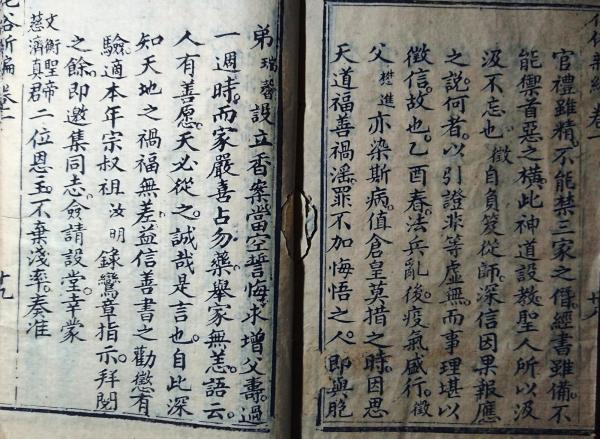 官禮雖精。不能禁三家之僭。經書雖備。不
能禦首惡之橫。此神道設教。聖人所以汲
汲不忘也 徵自負笈從師。深信因果報應
之說。何者。以引證非等虛無。而事理堪以
徵信。故也。乙酉春。法兵亂後。疫氣盛行。徵
父 楚進 亦染斯病。值倉皇莫措之時。因思
天道福善禍淫。罪不加悔悟之人。即與胞
弟 瑞馨 設立香案。當空誓悔。求增父壽。過
一週時。而家嚴喜占勿藥。舉家無恙。語云。
人有善愿。天必從之。誠哉是言也。自此深
知天地之禍福無差。益信善書之勸懲有
驗。適本年宗叔祖 汝明 錄鸞章指示。拜閱
之餘。即邀集同志。僉請設堂。幸蒙
文衡聖帝 慈濟真君 二位恩主。不棄淺率。奏准